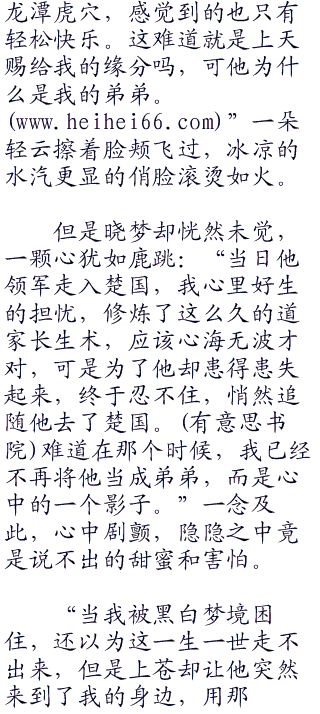 龙潭虎穴，感觉到的也只有
轻松快乐。这难道就是上天
赐给我的缘分吗，可他为什
么是我的弟弟。
(www.heihei66.com)”一朵
轻云擦着脸颊飞过，冰凉的
水汽更显的俏脸滚烫如火。
但是晓梦却恍然未觉，
一颗心犹如鹿跳：“当日他
领军走入楚国，我心里好生
的担忧，修炼了这么久的道
家长生术，应该心海无波才
对，可是为了他却患得患失
起来，终于忍不住，悄然追
随他去了楚国。(有意思书
院)难道在那个时候，我已经
不再将他当成弟弟，而是心
中的一个影子。”一念及
此，心中剧颤，隐隐之中竟
是说不出的甜蜜和害怕。
“当我被黑白梦境困
住，还以为这一生一世走不
出来，但是上苍却让他突然
来到了我的身边，用那